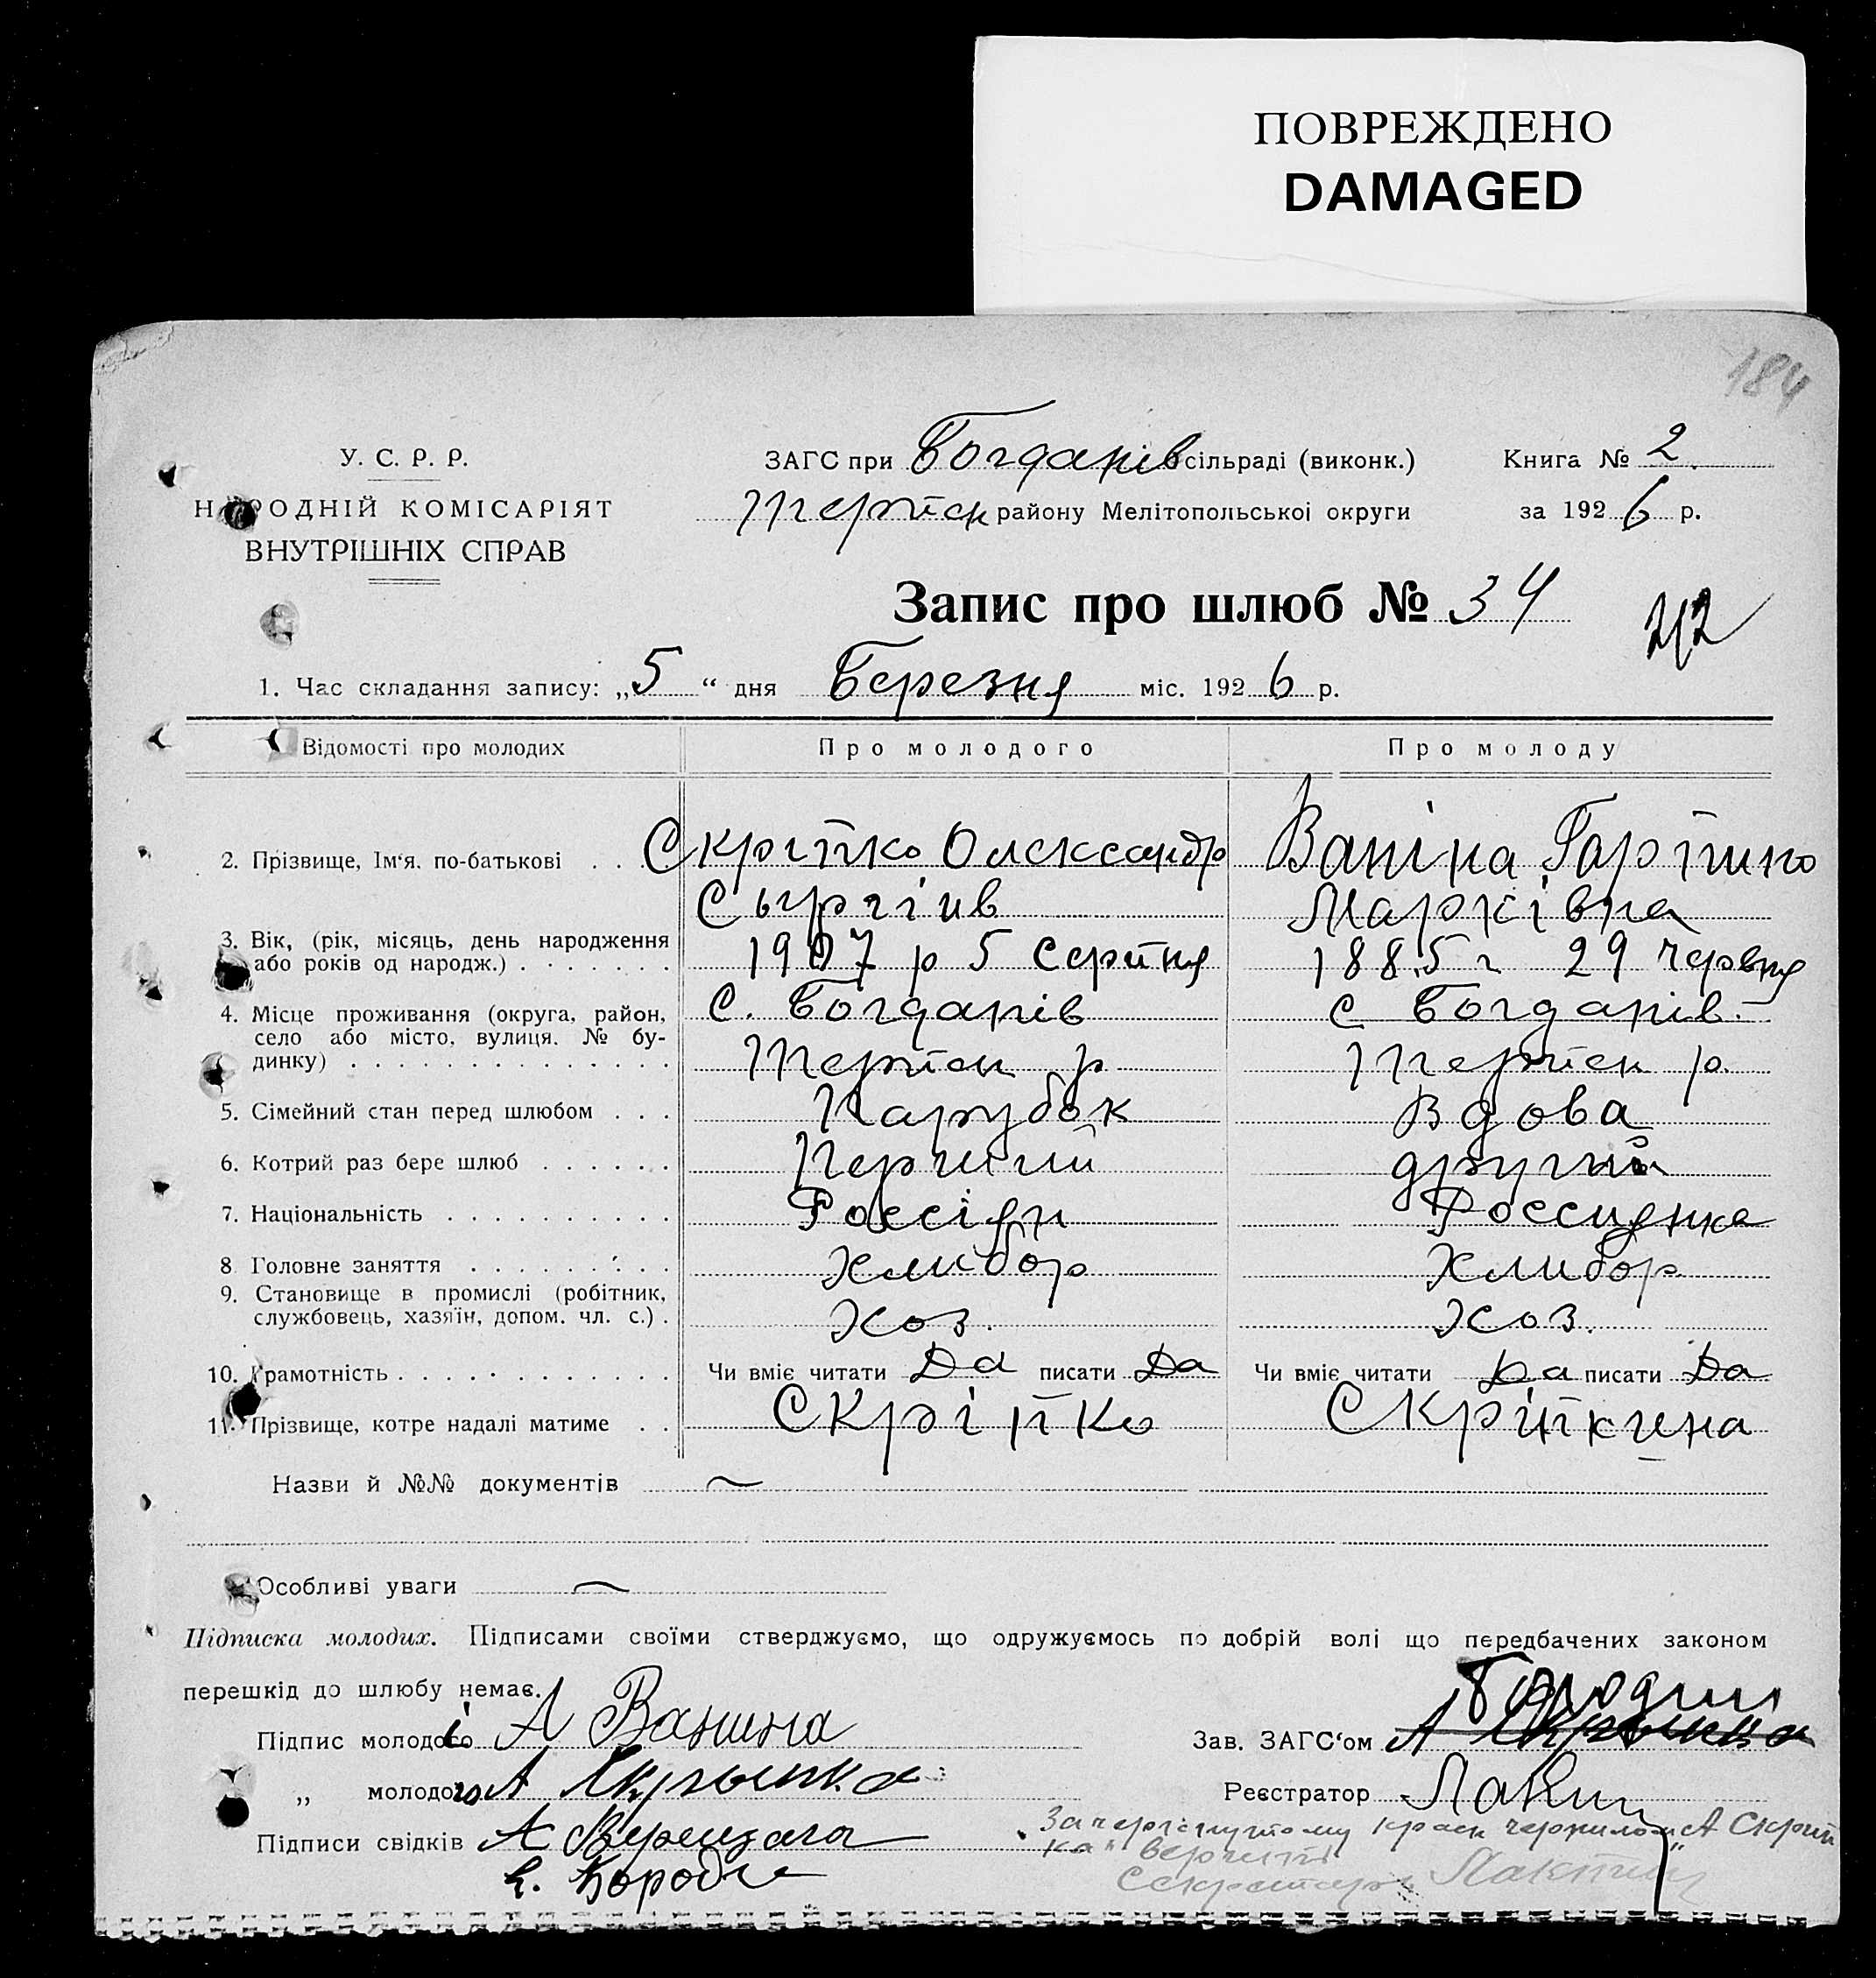 ПОВРЕЖДЕНО
DAMAGED
184
У. С. Р. Р.
НАРОДНІЙ КОМІСАРІЯТ
ВНУТРІШНІХ СПРАВ
ЗАГС при Богданів сільраді (виконк.)
Книга № 2
Терпен району Мелітопольської округи
за 1926 р.
Запис про шлюб № 34
212
1. Час складання запису: „5“ дня Березня міс. 1926 р.
Відомості про молодих Про молодого Про молоду
2. Прізвище, Ім‘я, по-батькові . . Скріпко Олександр Ваніна Гарпино
Сыргіив Марківна
3. Вік, (рік, місяць, день народження
або років од народж.) . . . . . . . 1907 р 5 Серпня 1885 г 29 Червня
4. Місце проживання (округа, район, С. Богданів с Богданів.
село або місто, вулиця, № бу-
динку) . . . . . . . . . . . . . . Терпен р Терпен р.
5. Сімейний стан перед шлюбом . . . Парубок Вдова
6. Котрий раз бере шлюб . . . . . . Перший другий
7. Національність . . . . . . . . . . Россіян Россиянка
8. Головне заняття . . . . . . . . . Хлибор Хлибор
9. Становище в промислі (робітник,
службовець, хазяїн, допом. чл. с.) . Хоз. Хоз.
10. Грамотність . . . . . . . . . . . . Чи вміє читати Да писати Да Чи вміє читати Да писати Да
11. Прізвище, котре надалі матиме . . Скріпко Скріпкина
Назви й №№ документів
Особливі уваги
Підписка молодих. Підписами своїми стверджуємо, що одружуємось по добрій волі що передбачених законом
перешкід до шлюбу немає.
Бородин
Підпис молодої А Ванина
Зав. ЗАГС‘ом А Скрыпка
„ молодого А Скрыпка
Реєстратор Лакти
Підписи свідків А Верещага
Е. Бородин
Зачеркнутому красн чернилом „А Скрип
ка" верити
Секретарь Лактин